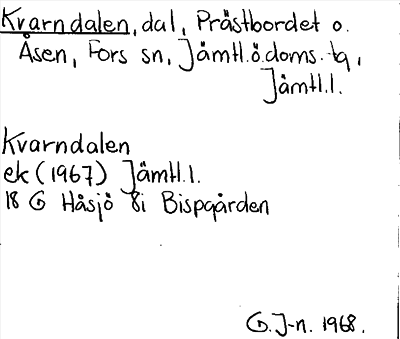 Kvarndalen, dal, Prästbordet o.
Åsen, Fors sn, Jämtl.ö.doms.tg,
Jämtl.l.
Kvarndalen
ek (1967) Jämtl.l.
18 G Håsjö 8i Bispgården
G.J-n. 1968.